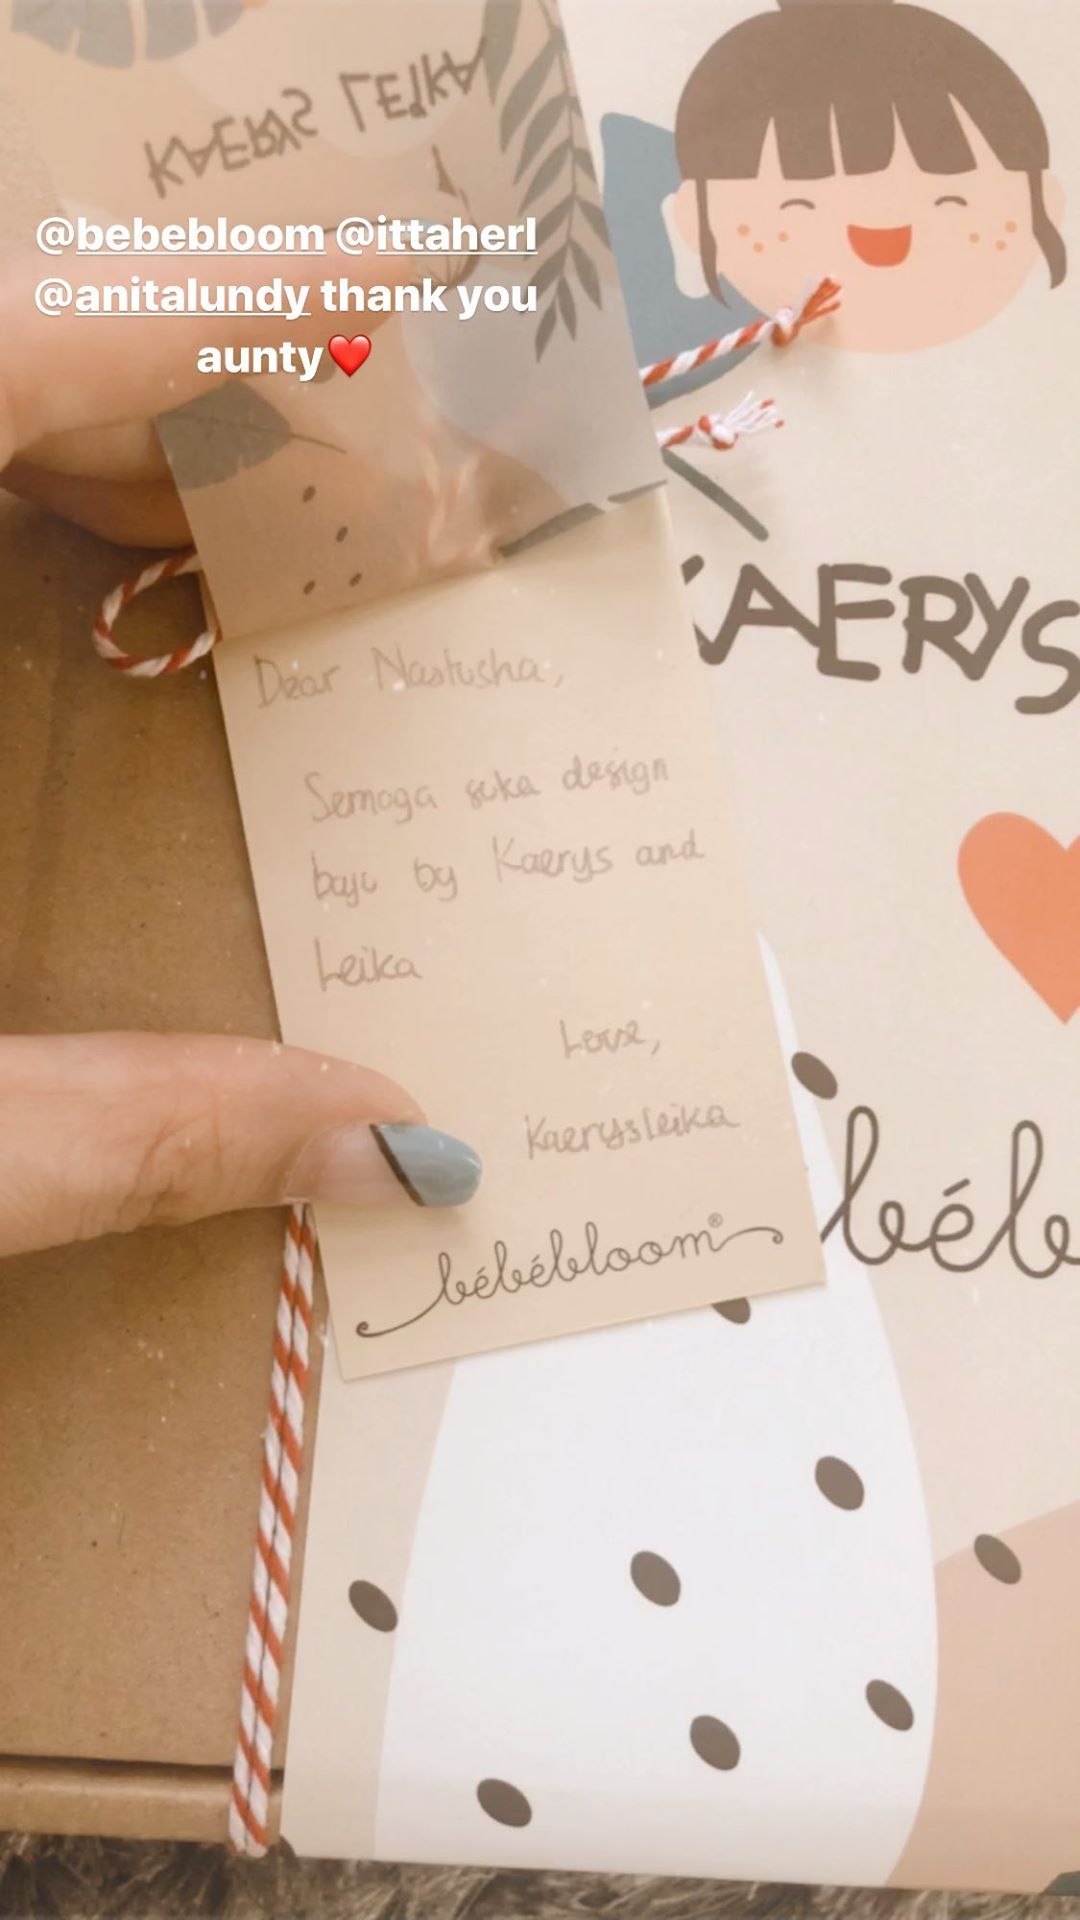 KAERYS LEIKA
@bebebloom @ittaherl
@anitalundy thank you
aunty❤️
KAERYS
Dear Nastusha,
Semoga suka design
baju by Kaerys and
Leika
Love,
Kaerysleika
bébébloom®
béb